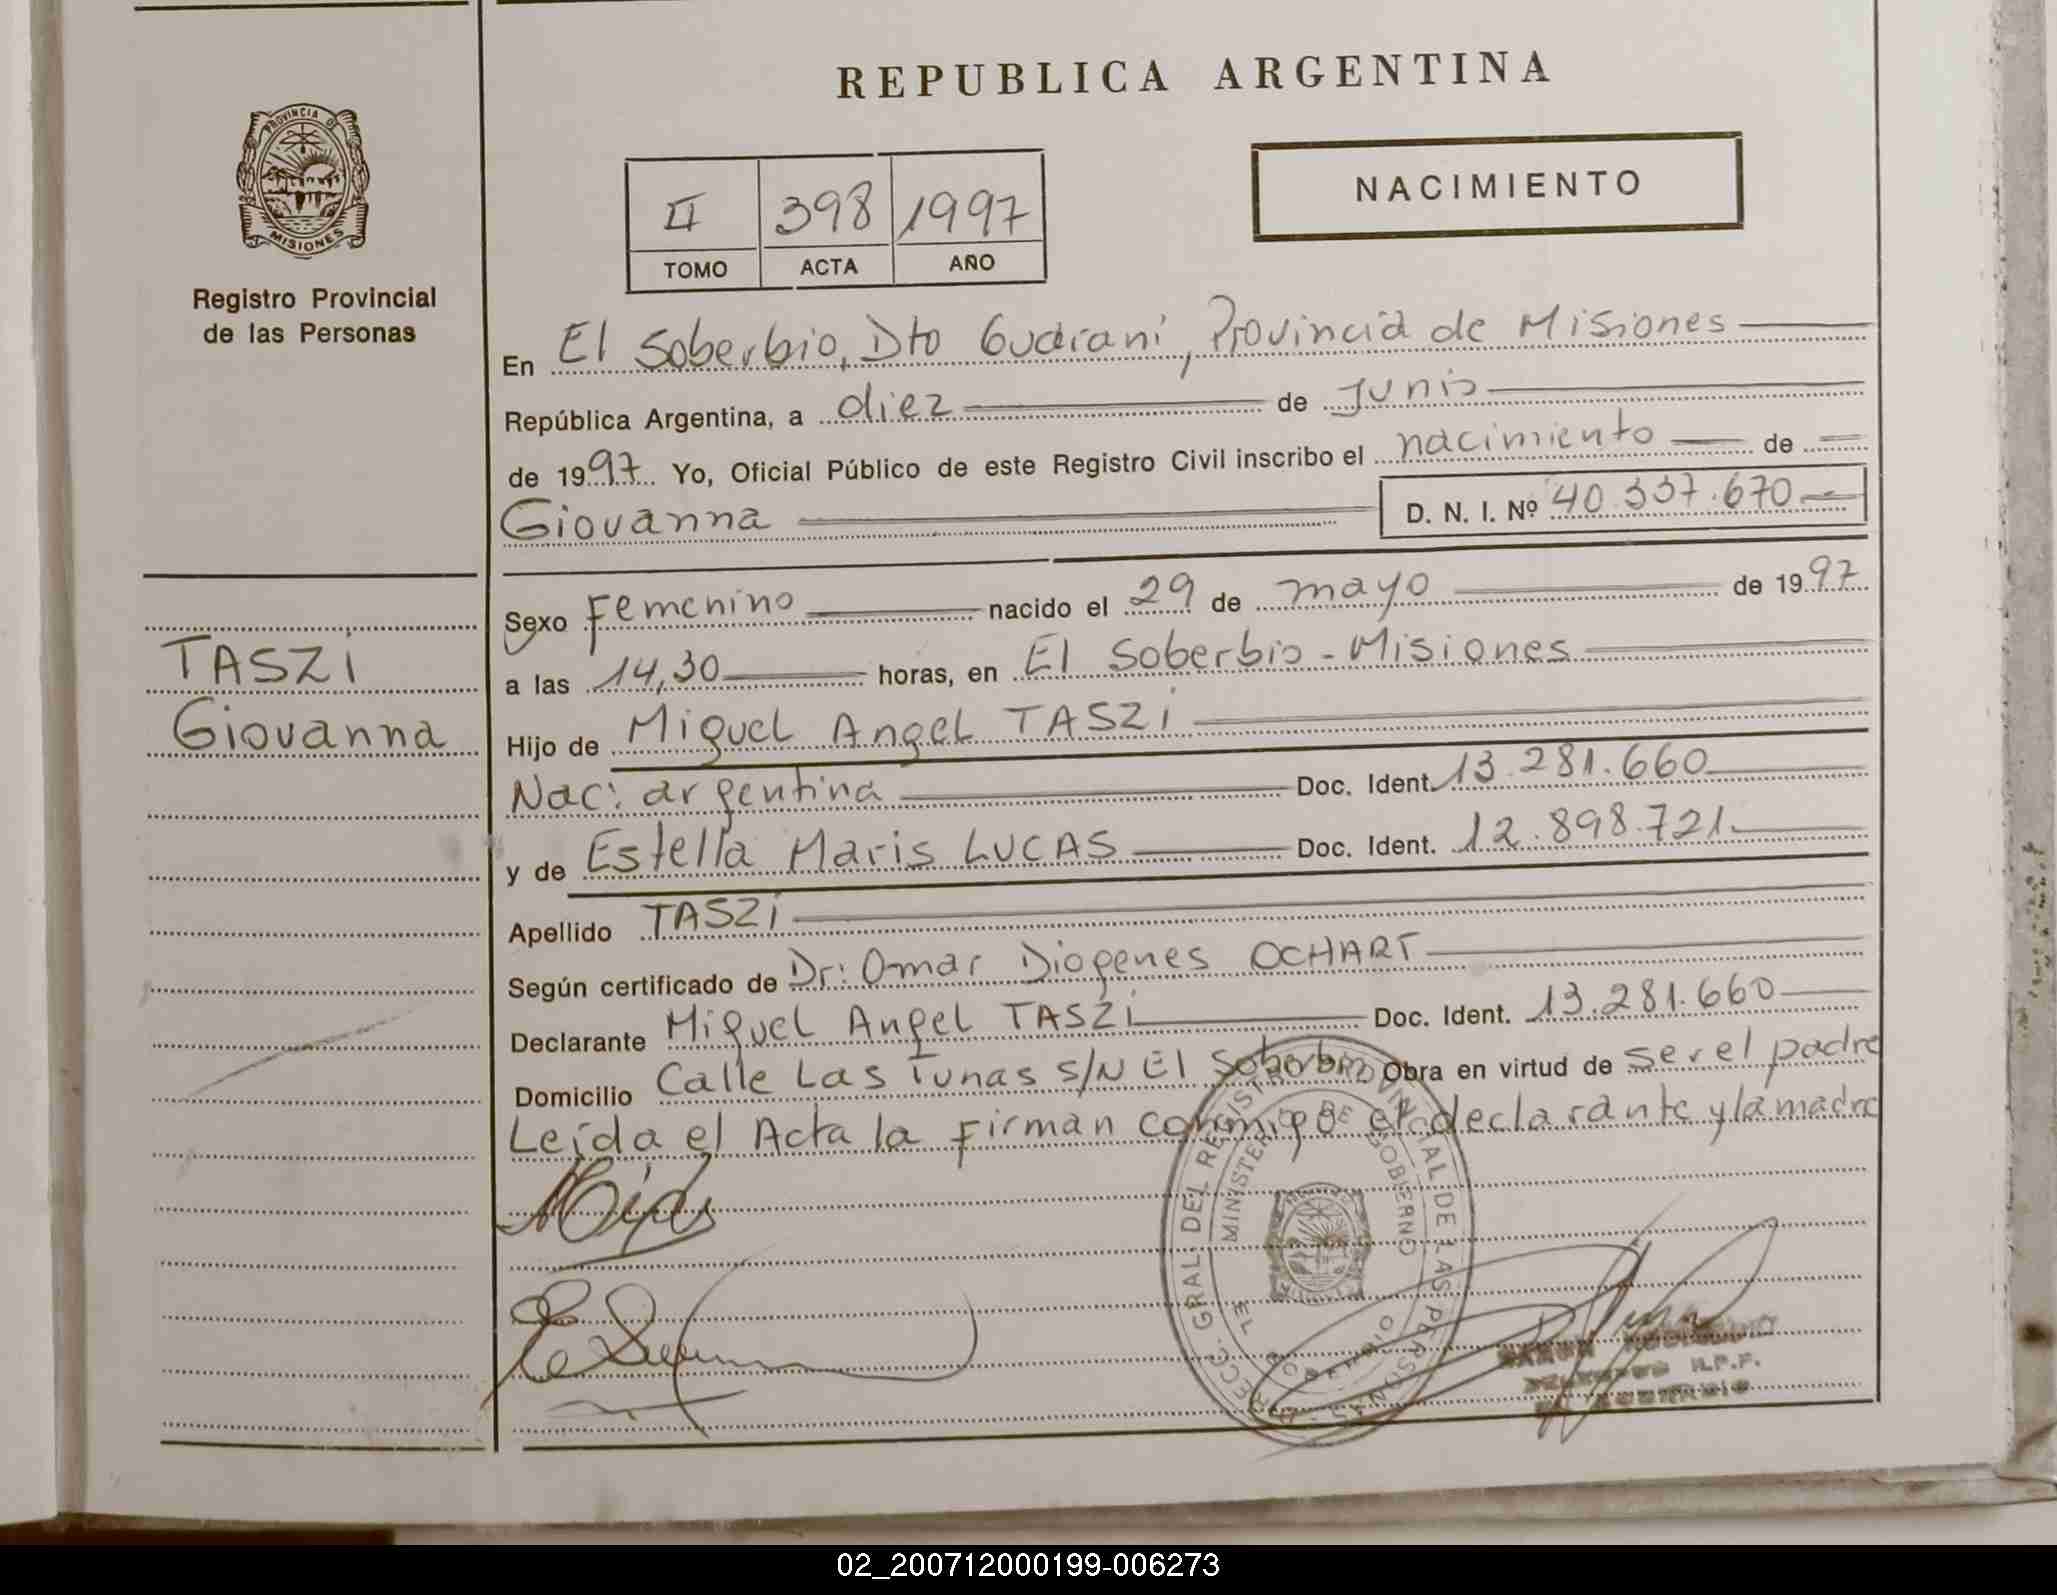 REPUBLICA ARGENTINA
PROVINCIA DE
MISIONES
Registro Provincial
de las Personas
NACIMIENTO
II 398 1997
TOMO ACTA AÑO
En El Soberbio, Dto Guarani, Provincia de Misiones
República Argentina, a diez de Junio
de 1997 Yo, Oficial Público de este Registro Civil inscribo el nacimiento de
Giovanna D. N. I. Nº 40.337.670
TASZi
Giovanna
Sexo Femenino nacido el 29 de mayo de 1997
a las 14,30 horas, en El Soberbio - Misiones
Hijo de Miguel Angel TASZi
Nac: argentina Doc. Ident. 13.281.660
y de Estella Maris LUCAS Doc. Ident. 12.898.721
Apellido TASZi
Según certificado de Dr: Omar Diógenes OCHART
Declarante Miguel Angel TASZi Doc. Ident. 13.281.660
Domicilio Calle Las Tunas S/N El Soberbio Obra en virtud de ser el padre
Leida el Acta la Firman conmigo el declarante y la madre
DIRECC. GRAL DEL REGISTRO PROVINCIAL DE LAS PERSONAS
MINISTERIO DE GOBIERNO
EL SOBERBIO
R.P.P.
EL SOBERBIO
02_200712000199-006273